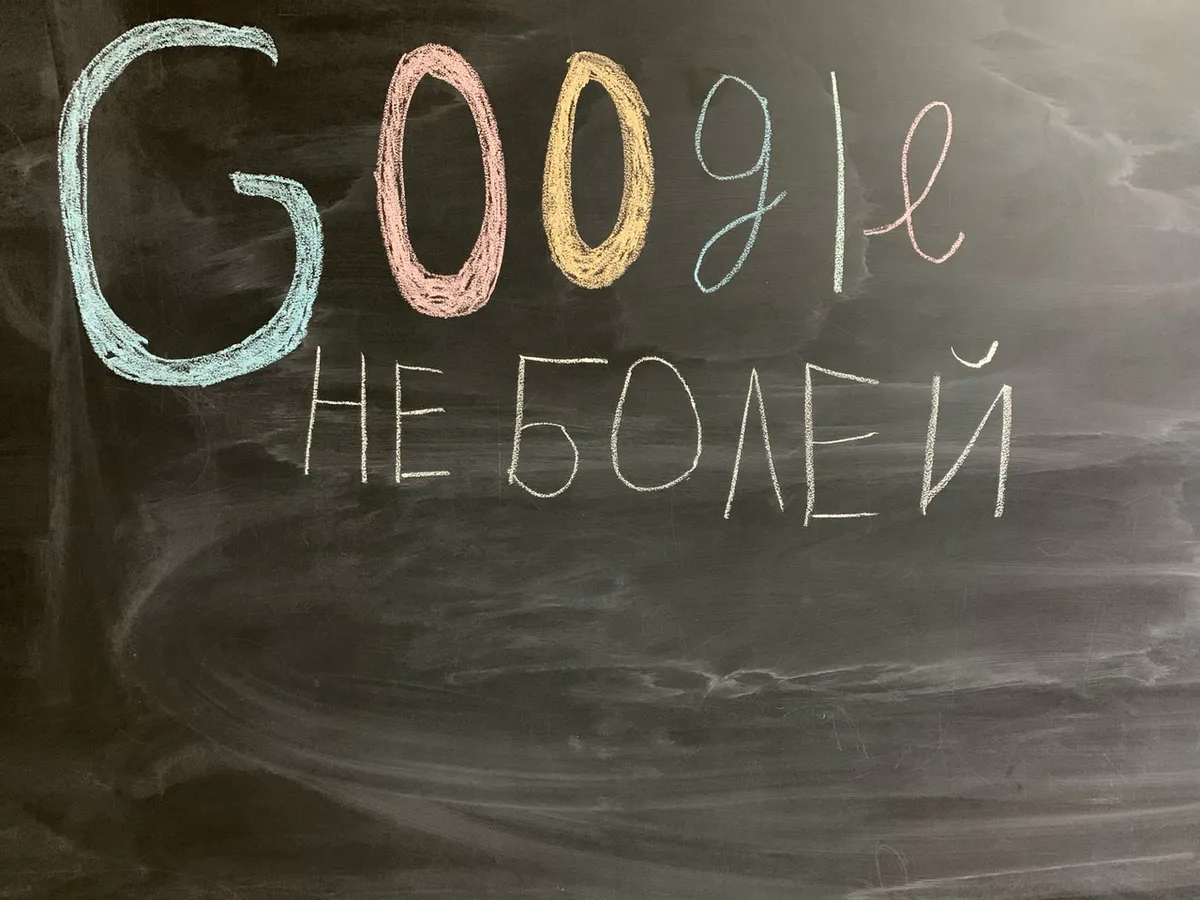 Google
НЕ БОЛЕЙ